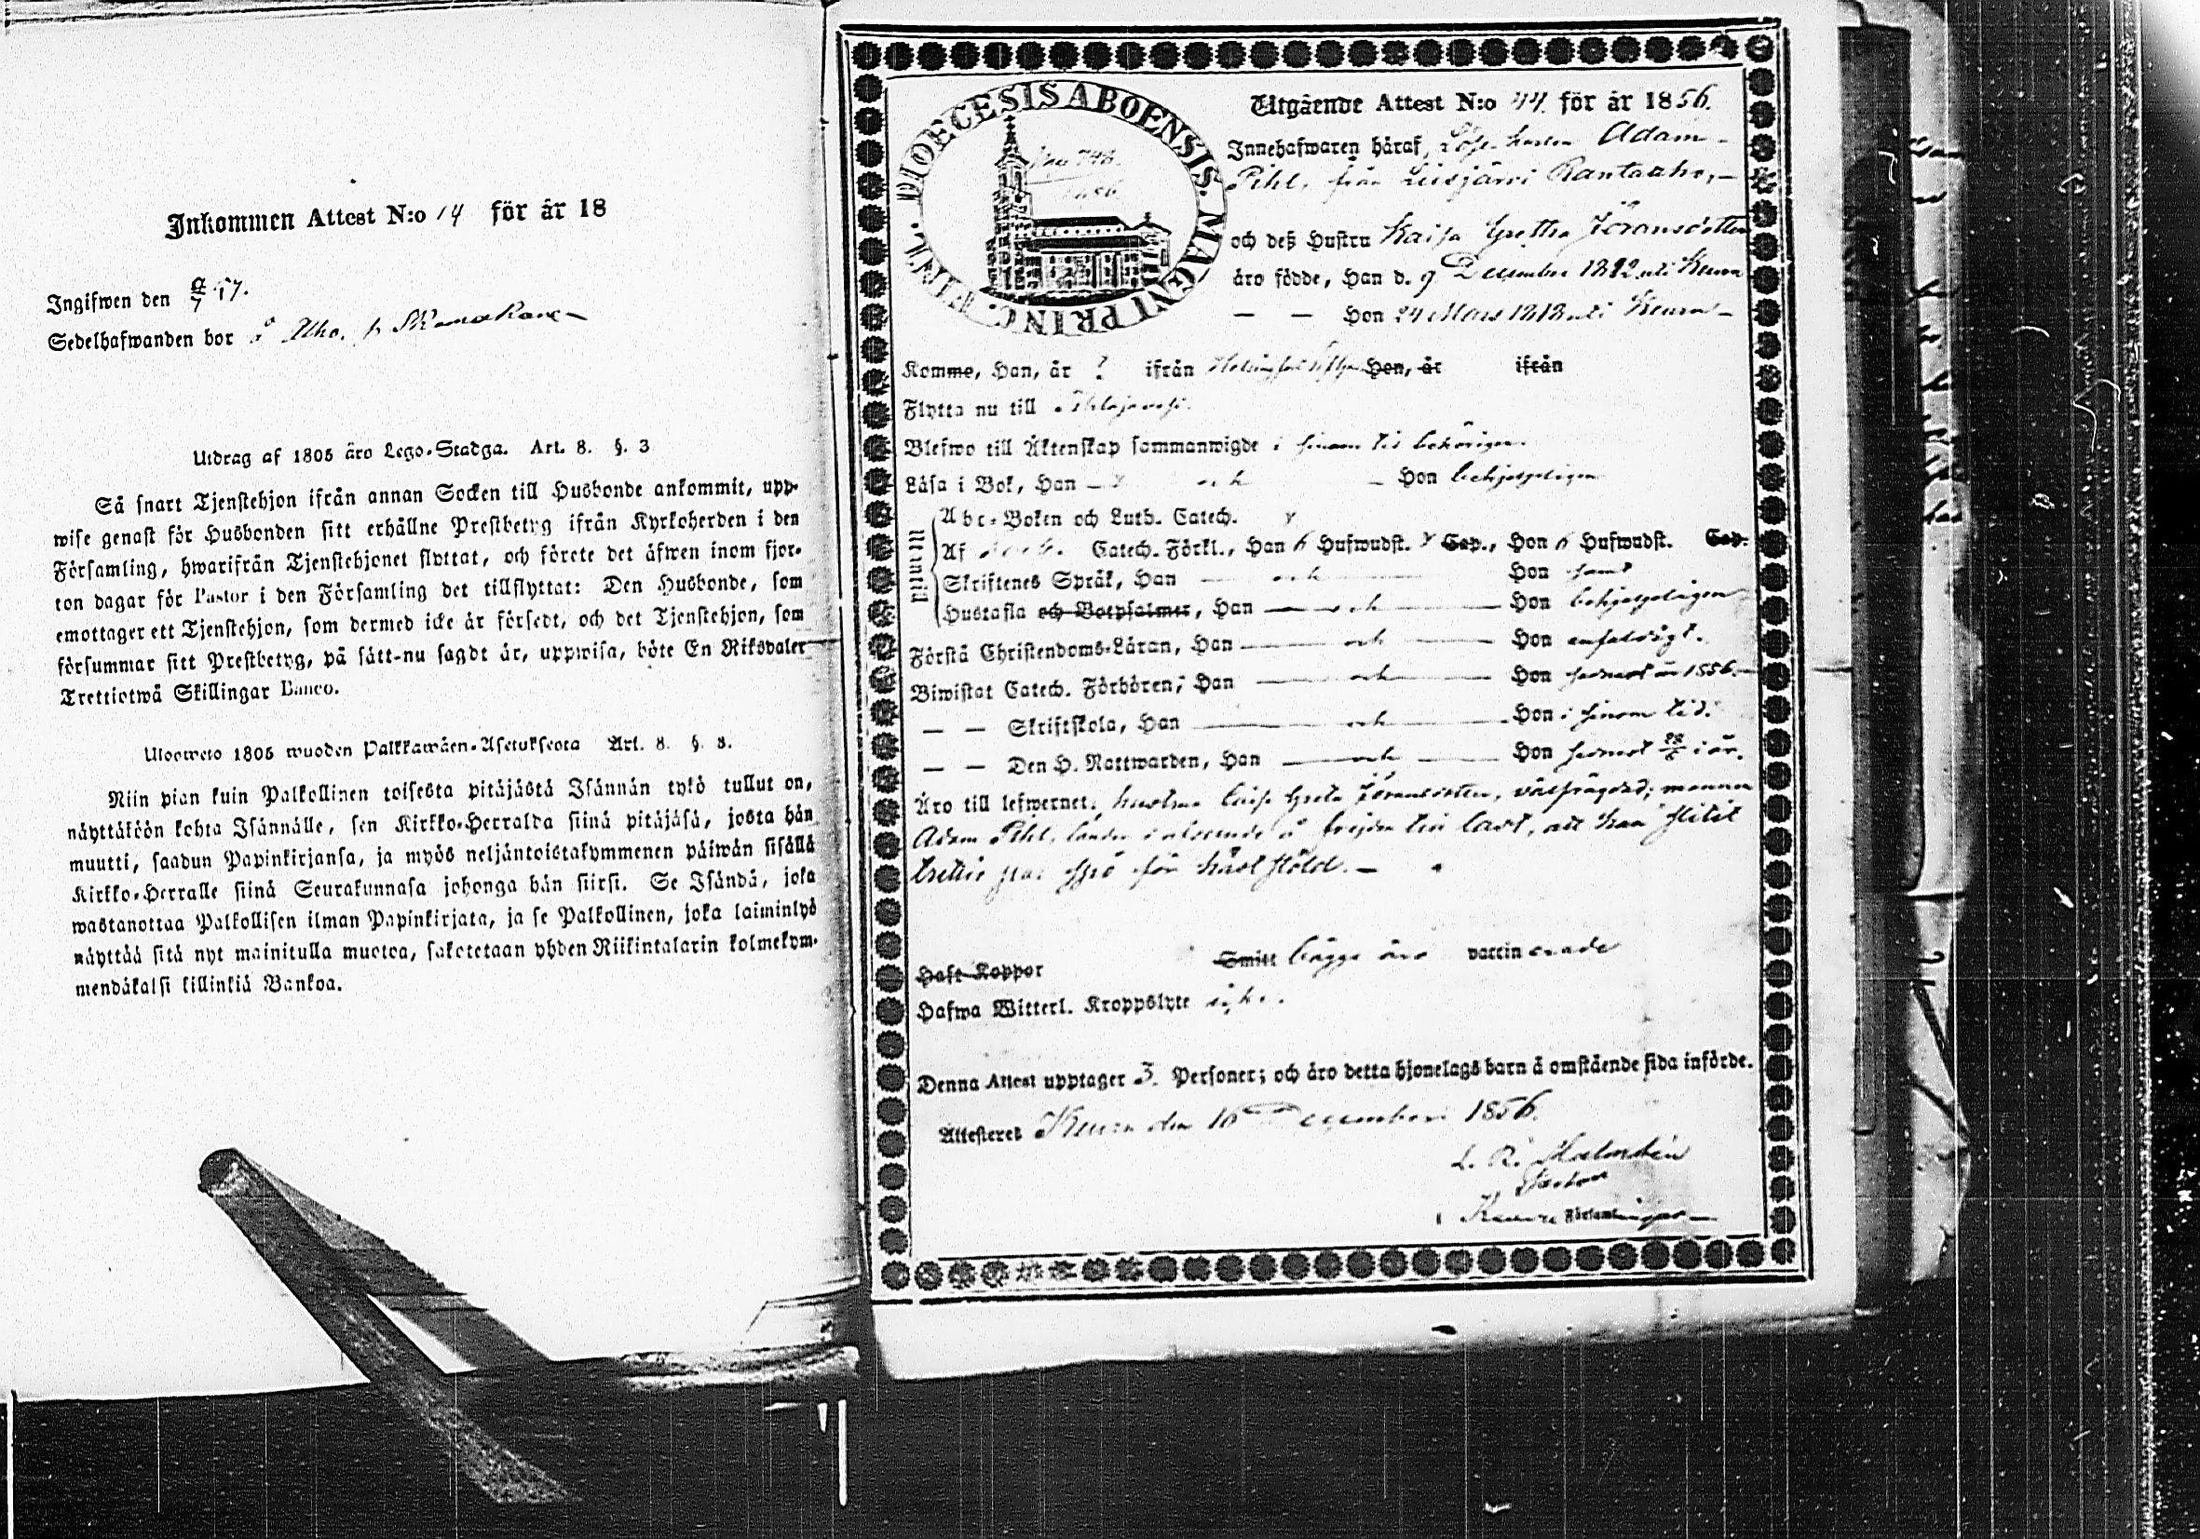 Inkommen Attest N:o 14 för år 18
Ingifwen den 57.
Sedelhafwanden bor å Aho,
Utdrag af 1805 års Lego-Stadga. Art. 8. §. 3
Så snart Tjenstehjon ifrån annan Socken till Husbonde ankommit, upp-
wise genast för Husbonden sitt erhållne Prestbetyg ifrån Kyrkoherden i den
Församling, hwarifrån Tjenstehjonet flyttat, och förete det äfwen inom fjor-
ton dagar för Pastor i den Församling det tillflyttat: Den Husbonde, som
emottager ett Tjenstehjon, som dermed icke är försedt, och det Tjenstehjon, som
försummar sitt Prestbetyg, på sätt-nu sagdt är, uppwisa, böte En Riksdaler
Trettiotwå Skillingar Banco.
Uloswето 1805 wuoden Palkkawäen-Asetuksesta Art. 8. §. 3.
Niin pian kuin Palkollinen toisesta pitäjästä Isännän tykö tullut on,
näyttäköön kohta Isännälle, sen Kirkko-Herralda siinä pitäjäsä, josta hän
muutti, saadun Papinkirjansa, ja myös neljäntoistakymmenen päiwän sisällä
Kirkko-Herralle siinä Seurakunnasa johonga hän siirsi. Se Isändä, joka
wastanottaa Palkollisen ilman Papinkirjata, ja se Palkollinen, joka laiminlyö
näyttää sitä nyt mainitulla muotoa, saketetaan yhden Riikintalarin kolmekym-
mendäkalsi killinkiä Bankoa.
DIOECESIS ABOENSIS. MAGNI PRINC. FINL.
Utgående Attest N:o 44. för år 1856.
Innehafwaren häraf, Adam
Pihl, från Liesjärvi Rantaaho,
och deß Hustru Kaisa Gretha Jöransdotter
äro födde, Han d. 9 December 1812 uti Keuru
— — Hon 24 Mars 1818 uti Keuru
Komme, Han, år ? ifrån Hon, år ifrån
Flytta nu till Pihlajavesi.
Blefwo till Äktenskap sammanwigde i sinom tid behörigen.
Läsa i Bok, Han — och — Hon behjelpeligen
Utantill
Abc-Boken och Luth. Catech.
Af Catech. Förkl., Han 6 Hufwudst. Cap., Hon 6 Hufwudst. Cap.
Skriftenes Språk, Han — och — Hon samt
Hustafla och Botpsalmer, Han — och — Hon behjelpeligen
Förstå Christendoms-Läran, Han — och — Hon enfaldigt.
Biwistat Catech. Förhören, Han — och — Hon sednast år 1856.
— — Skriftskola, Han — och — Hon i sinom tid.
— — Den H. Nattwarden, Han — och — Hon sednast i år.
Äro till lefwernet, hustrun Caisa Greta Jöransdotter, välfrägdad; mannen
Adam Pihl, å frejden till last, att han slitit
trettio par spö för häststöld.
Haft Koppor Smitt bägge äro vaccinerade
Hafwa Witterl. Kroppslyte icke.
Denna Attest upptager 3. Personer; och äro detta hjonelags barn å omstående sida införde.
Attesteres Keuru den 16 December 1856.
L. R. Malmstén
Pastor
i Keuru Församlingar